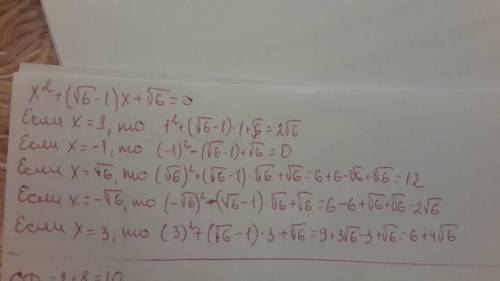 x²+(√6-1)x+√6=0
Если x=1, то 1²+(√6-1)·1+√6=2√6
Если x=-1, то (-1)²-(√6-1)+√6=0
Если x=√6, то (√6)²+(√6-1)·√6+√6=6+6-√6+√6=12
Если x=-√6, то (-√6)²+(√6-1)·√6+√6=6-6+√6+√6=2√6
Если x=3, то (3)²+(√6-1)·3+√6=9+3√6-3+√6=6+4√6